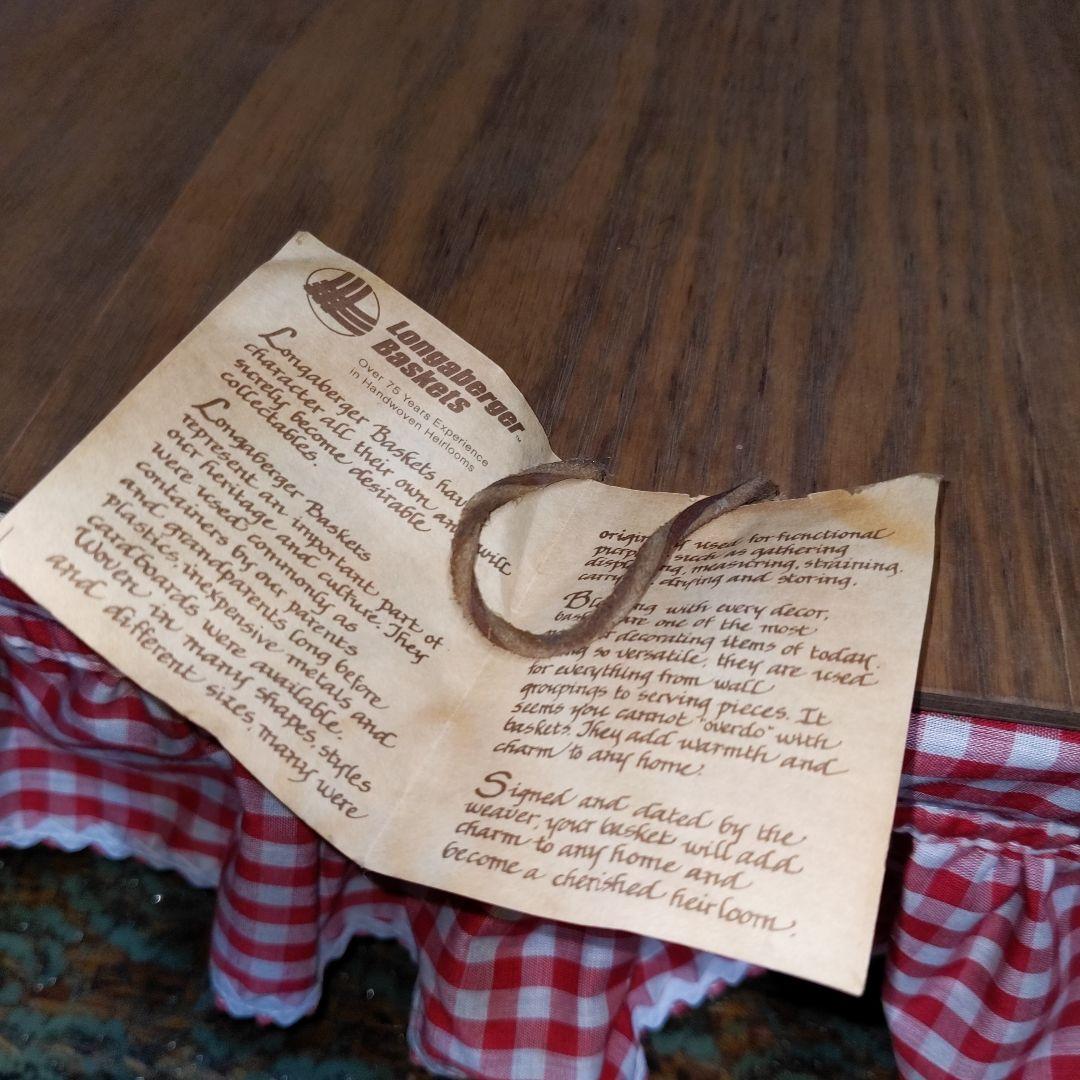 Longaberger™
Baskets
Over 75 Years Experience
in Handwoven Heirlooms
Longaberger Baskets have
character all their own and will
surely become desirable
collectables.
Longaberger Baskets
represent an important part of
our heritage and culture. They
were used commonly as
containers by our parents
and grandparents long before
plastics, inexpensive metals and
cardboards were available.
Woven in many shapes, styles
and different sizes, many were
used for functional
such as gathering
measuring, straining,
drying and storing.
with every decor,
are one of the most
decorating items of today.
so versatile, they are used
for everything from wall
groupings to serving pieces. It
seems you cannot "overdo" with
baskets. They add warmth and
charm to any home.
Signed and dated by the
weaver, your basket will add
charm to any home and
become a cherished heirloom.